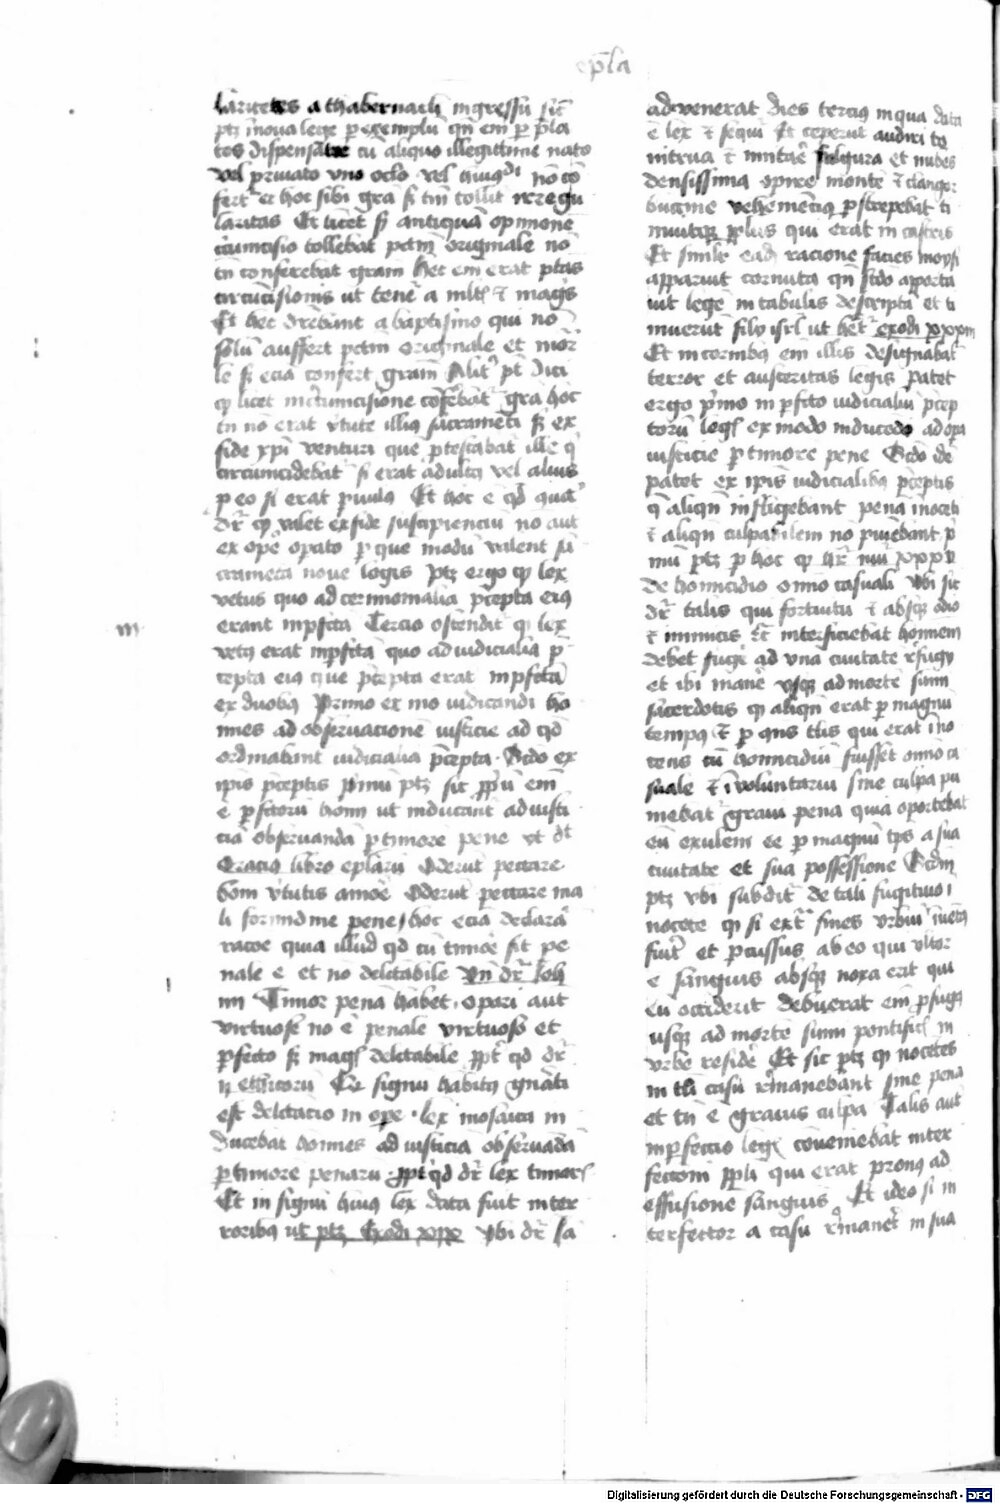 ep̄la
laritates a thabernacli ingressū sic̄
ptȝ ī noua lege p exemplū qn̄ em̄ p p̄la
tos dispensat cū aliquo illegittime nato
vel priuato vno oclo vel huiusdi nō cō
fert ei hoc sibi grā sȝ tm̄ tollit irregu
laritas Et licet sȝ antiquā opinionē
circūcisio tollebat pctm̄ originale nō
tn̄ conferebat grām hec em̄ erat ptās
circūcisionis ut tenet a mltꝭ ⁊ magꝭ
Et hec dr̄ebant a baptismo qui nō
solū auffert pctm̄ originale et mor
le sȝ eciā confert grām Alit̄ pt̄ dici
ꝙ licet in circūcisione cōferebat̄ grā hoc
tn̄ nō erat v̄tute illiꝰ sacramēti sȝ ex
fide xp̄i venturi quē ꝓtestabat̄ ille qͥ
circumcidebat̄ si erat adultꝰ vel aliuis
p eo si erat puulꝰ Et hoc ē qd̄
dr̄ ꝙ valet ex fide suscipienciū nō aut̄
ex opē opato p quē modū valent sa
cramēta noue legis ptȝ ergo ꝙ lex
vetus quo ad cerimonialia p̄cepta eiꝰ
erant inpfc̄ta Tercio ostendit̄ ꝙ lex
vetꝰ erat inpfc̄ta quo ad iudicialia p̄
cepta eiꝰ que p̄cepta erāt inpfc̄tā
ex duobꝰ Primo ex mō iudicandi ho
mines ad obseruacionē iusticie ad qd̄
ordinabant̄ iudicialia p̄cepta Scdo ex
ip̄is p̄ceptis p̄mū ptȝ sic p̄pū em̄
ē pfectorū hoīm ut inducant̄ ad iusti
ciā obseruandā p timorē pene vt dt̄
Oracius libro ep̄larū Oderūt peccare
boni v̄tutis amoē Oderūt peccare ma
li formidine pene hoc eciā declarat̄
racōe quia illud qd̄ cū timoē fit pe
nale ē et nō delctabile Vn̄ dr̄ Joh
iiij Timor penā habet opari aut̄
virtuose nō ē penale virtuoso et
pfecto sȝ magꝭ delctabile ppt̄ qd̄ dr̄
ij ethicorū Qꝫ signū habitꝰ gn̄ati
est delctatio in opē lex mosaica in
ducebat hoīnes ad iusticiā obseruādā
p timorē penarū ppt̄ qd̄ dr̄ lex timorꝭ
Et in signū huiꝰ lex data fuit in ter
roribꝰ ut ptȝ Exodi xix Vbi dr̄ Jā
m
aduenerat dies terciꝰ in qua data
ē lex ⁊ sequit̄ Et ceperūt audiri to
nitrua ⁊ micare fulgura et nubes
densissima opīre montē ⁊ clangor
bucine vehemēciꝰ pstrepebat ti
muitqȝ pp̄lus qui erat in castris
Et similr̄ eadē racione facies moysi
apparuit cornuta qn̄ scdo apporta
uit legē in tabulis descriptā et ti
muerūt filij isrl̄ ut hēt̄ exodi xxxiiij
Et in cornibꝰ em̄ illis designabat̄
terror et austeritas legis patet
ergo p̄mo inpfc̄to iudicialiū p̄cep
torū legꝭ ex modo inducēdo ad opa
iusticie p timorē pene Scdo de
patet ex ip̄is iudicialibꝰ p̄ceptis
q̄ aliqn̄ infligebant penā inocēti
⁊ aliqn̄ culpabilem nō puniebant p̄
mū ptȝ p hoc ꝙ hr̄ nūi xxxv
de homicidio om̄ino casuali vbi sic
dr̄ talis qui fortuitu ⁊ absqȝ odio
⁊ inimicis ⁊c̄ interficiebat hominem
debet fuge ad vnā ciuitatē refugij
et ibi manē vsqȝ ad mortē sūmi
sacerdotis ꝙ aliqn̄ erat p magnū
tempꝰ ⁊ p qns tlis qui erat īno
cens cū homicidiū fuisset om̄ino ca
suale ⁊ īvoluntariū sine culpa pu
niebat̄ graui pena quia oportebat
eū exulem eē p magnū tp̄s a sua
ciuitate et sua possessione Scdm
ptȝ vbi subdit̄ de tali fugitiuo ī
nocēte ꝙ si extͣ fines vrbiū īuētꝰ
fuit̄ et pcussus ab eo qui vltor
ē sanguis absqȝ noxa erit qui
eū occiderit debuerat em̄ pfugꝰ
usqȝ ad mortē sūmi pontificꝭ in
vrbe residē Et sic ptȝ ꝙ nocētes
in tli casu rͤmanebant sine pena
et tn̄ ē grauis culpa Talis aut̄
inpfectio legꝭ cōueniebat inter
fectoni pp̄li qui erat pronꝰ ad
effusionē sanguis Et ideo si in
terfector a casu rͤmaneret in sua